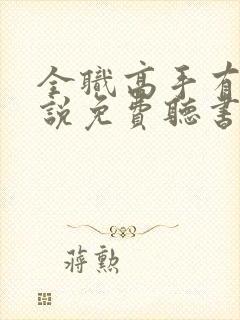 全職高手有
說免費聽書
蔣勲